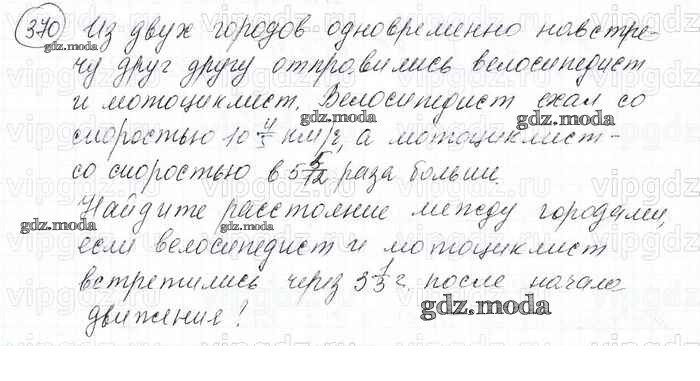 370 Из двух городов одновременно навстре-
чу друг другу отправились велосипедист
и мотоциклист. Велосипедист ехал со
скоростью 10 4/5 км/ч, а мотоциклист -
со скоростью в 5 5/12 раза больши.
Найдите расстояние между городами,
если велосипедист и мотоциклист
встретились через 3 1/3 г. после начала
движения!
gdz.moda
gdz.moda
gdz.moda
gdz.moda
gdz.moda
gdz.moda
gdz.moda